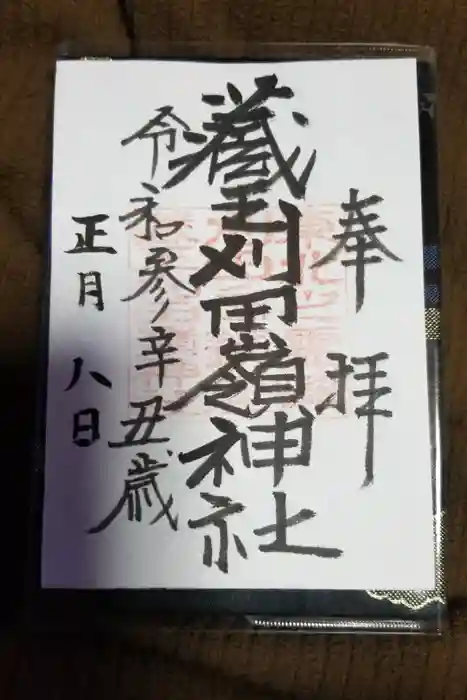 奉拝
蔵王刈田嶺神社
令和参辛丑歳
正月八日